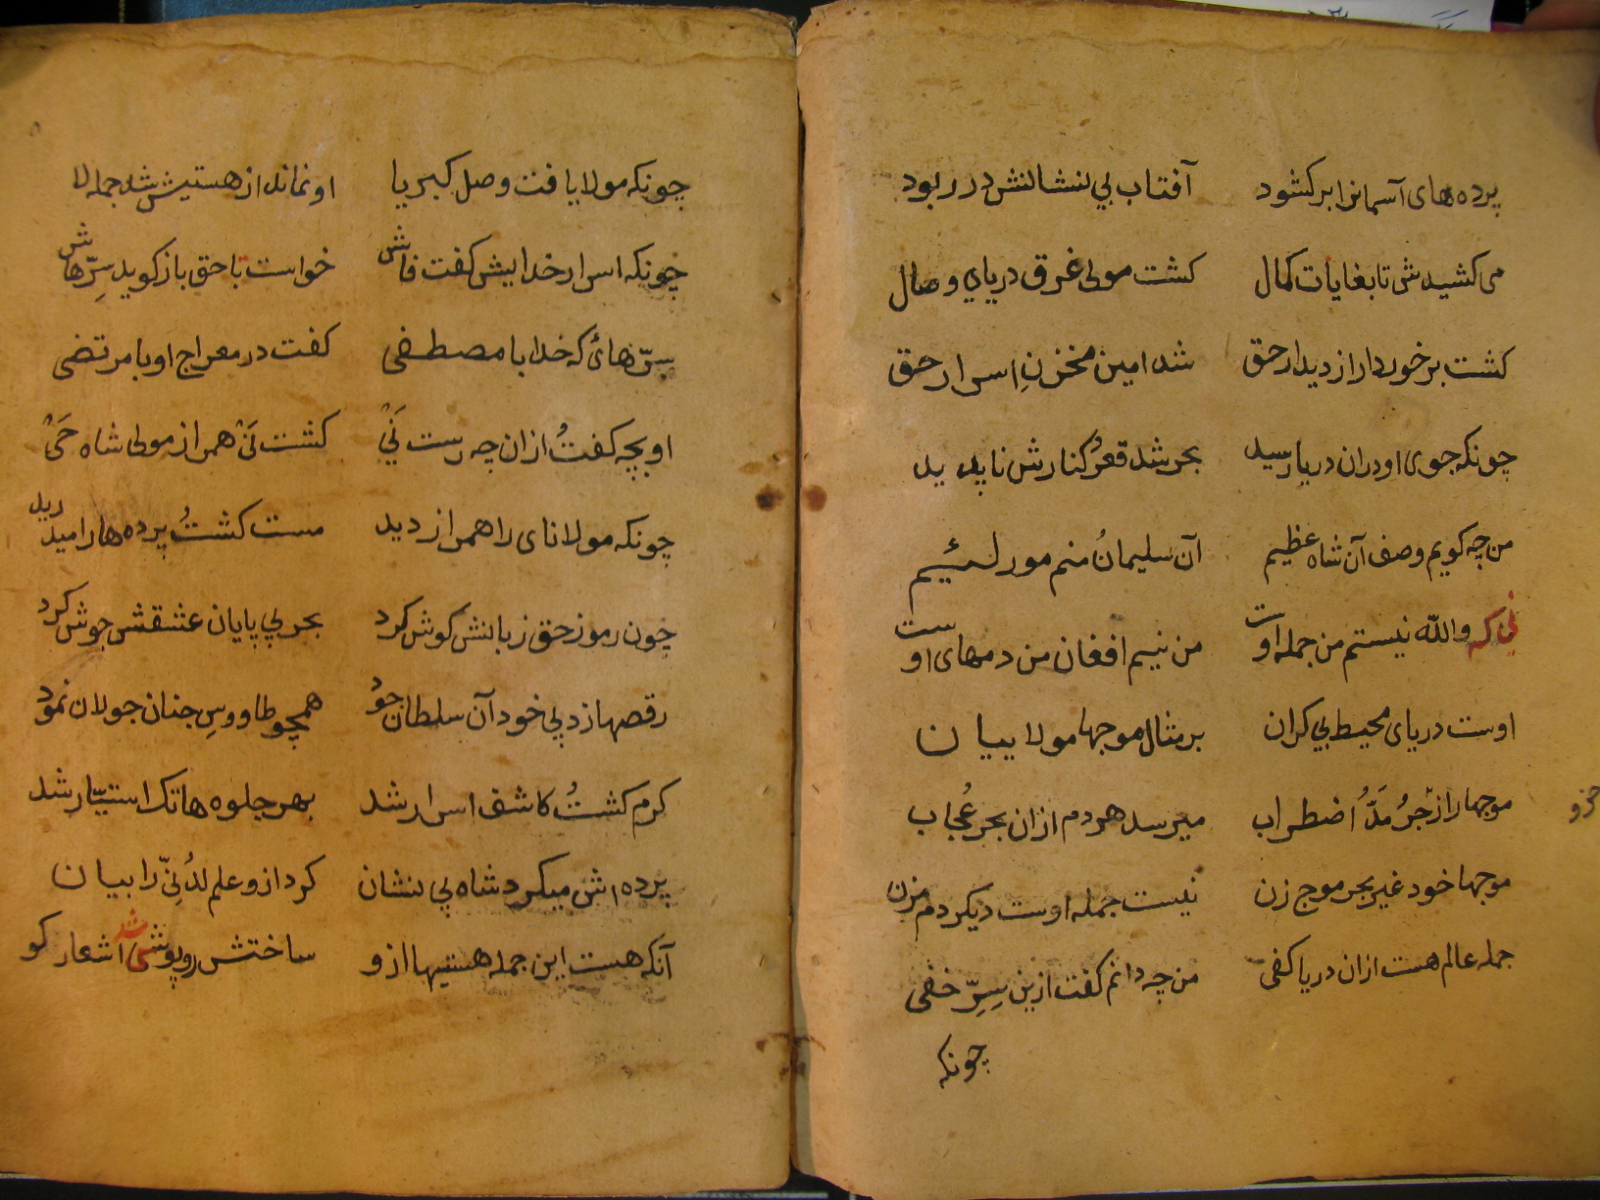 پرده‌های آسمانرا برکشود آفتاب بی نشانش در ربود
می کشیدش تا بغایات کمال کشت مولی غرق دریای وصال
کشت برخوردار از دیدار حق شد امین مخزنِ اسرار حق
چونکه جوی او دران دریا رسید بحر شد قعرُ کنارش ناپدید
من چه کویم وصف آن شاه عظیم آن سلیمانُ منم مور لئیم
نی که والله نیستم من جمله اوست من نیم افغان من دمهای اوست
اوست دریای محیط بی کران بر مثال موجها مولا بیان
موجها را از جرُ مَدُّ اضطراب میرسد هردم ازان بحر عُجاب
موجها خود غیر بحر موج زن نیست جمله اوست دیکر دم مزن
جمله عالم هست ازان دریا کفی من چه دانم کفت ازین سِرِّ خفی
چونکه
چونکه مولا یافت وصل کبریا او نماند از هستیش شد جمله لا
چونکه اسرار خدایش کفت فاش خواست با حق باز کوید سِرّهاش
سِرّهائ که خدا با مصطفی کفت در معراج او با مرتضی
او بچه کفتُ ازان چه رست نَیْ کشت نَیْ همراز مولی شاه حَیْ
چونکه مولا نای را همراز دید مست کشتُ پرده‌ها را میدرید
چون رموز حق زبانش کوش کرد بحر بی پایان عشقش جوش کرد
رقصها زد پی خود آن سلطان جود همچو طاووسِ جنان جولان نمود
کرم کشتُ کاشف اسرار شد بهر جلوه هاتک استیّار شد
پرده‌اش میکرد شاه بی نشان کرد ازو علم لدُنّی را بیان
آنکه هست این جمله هستیها ازو ساختش روپوش شد اشعار کو